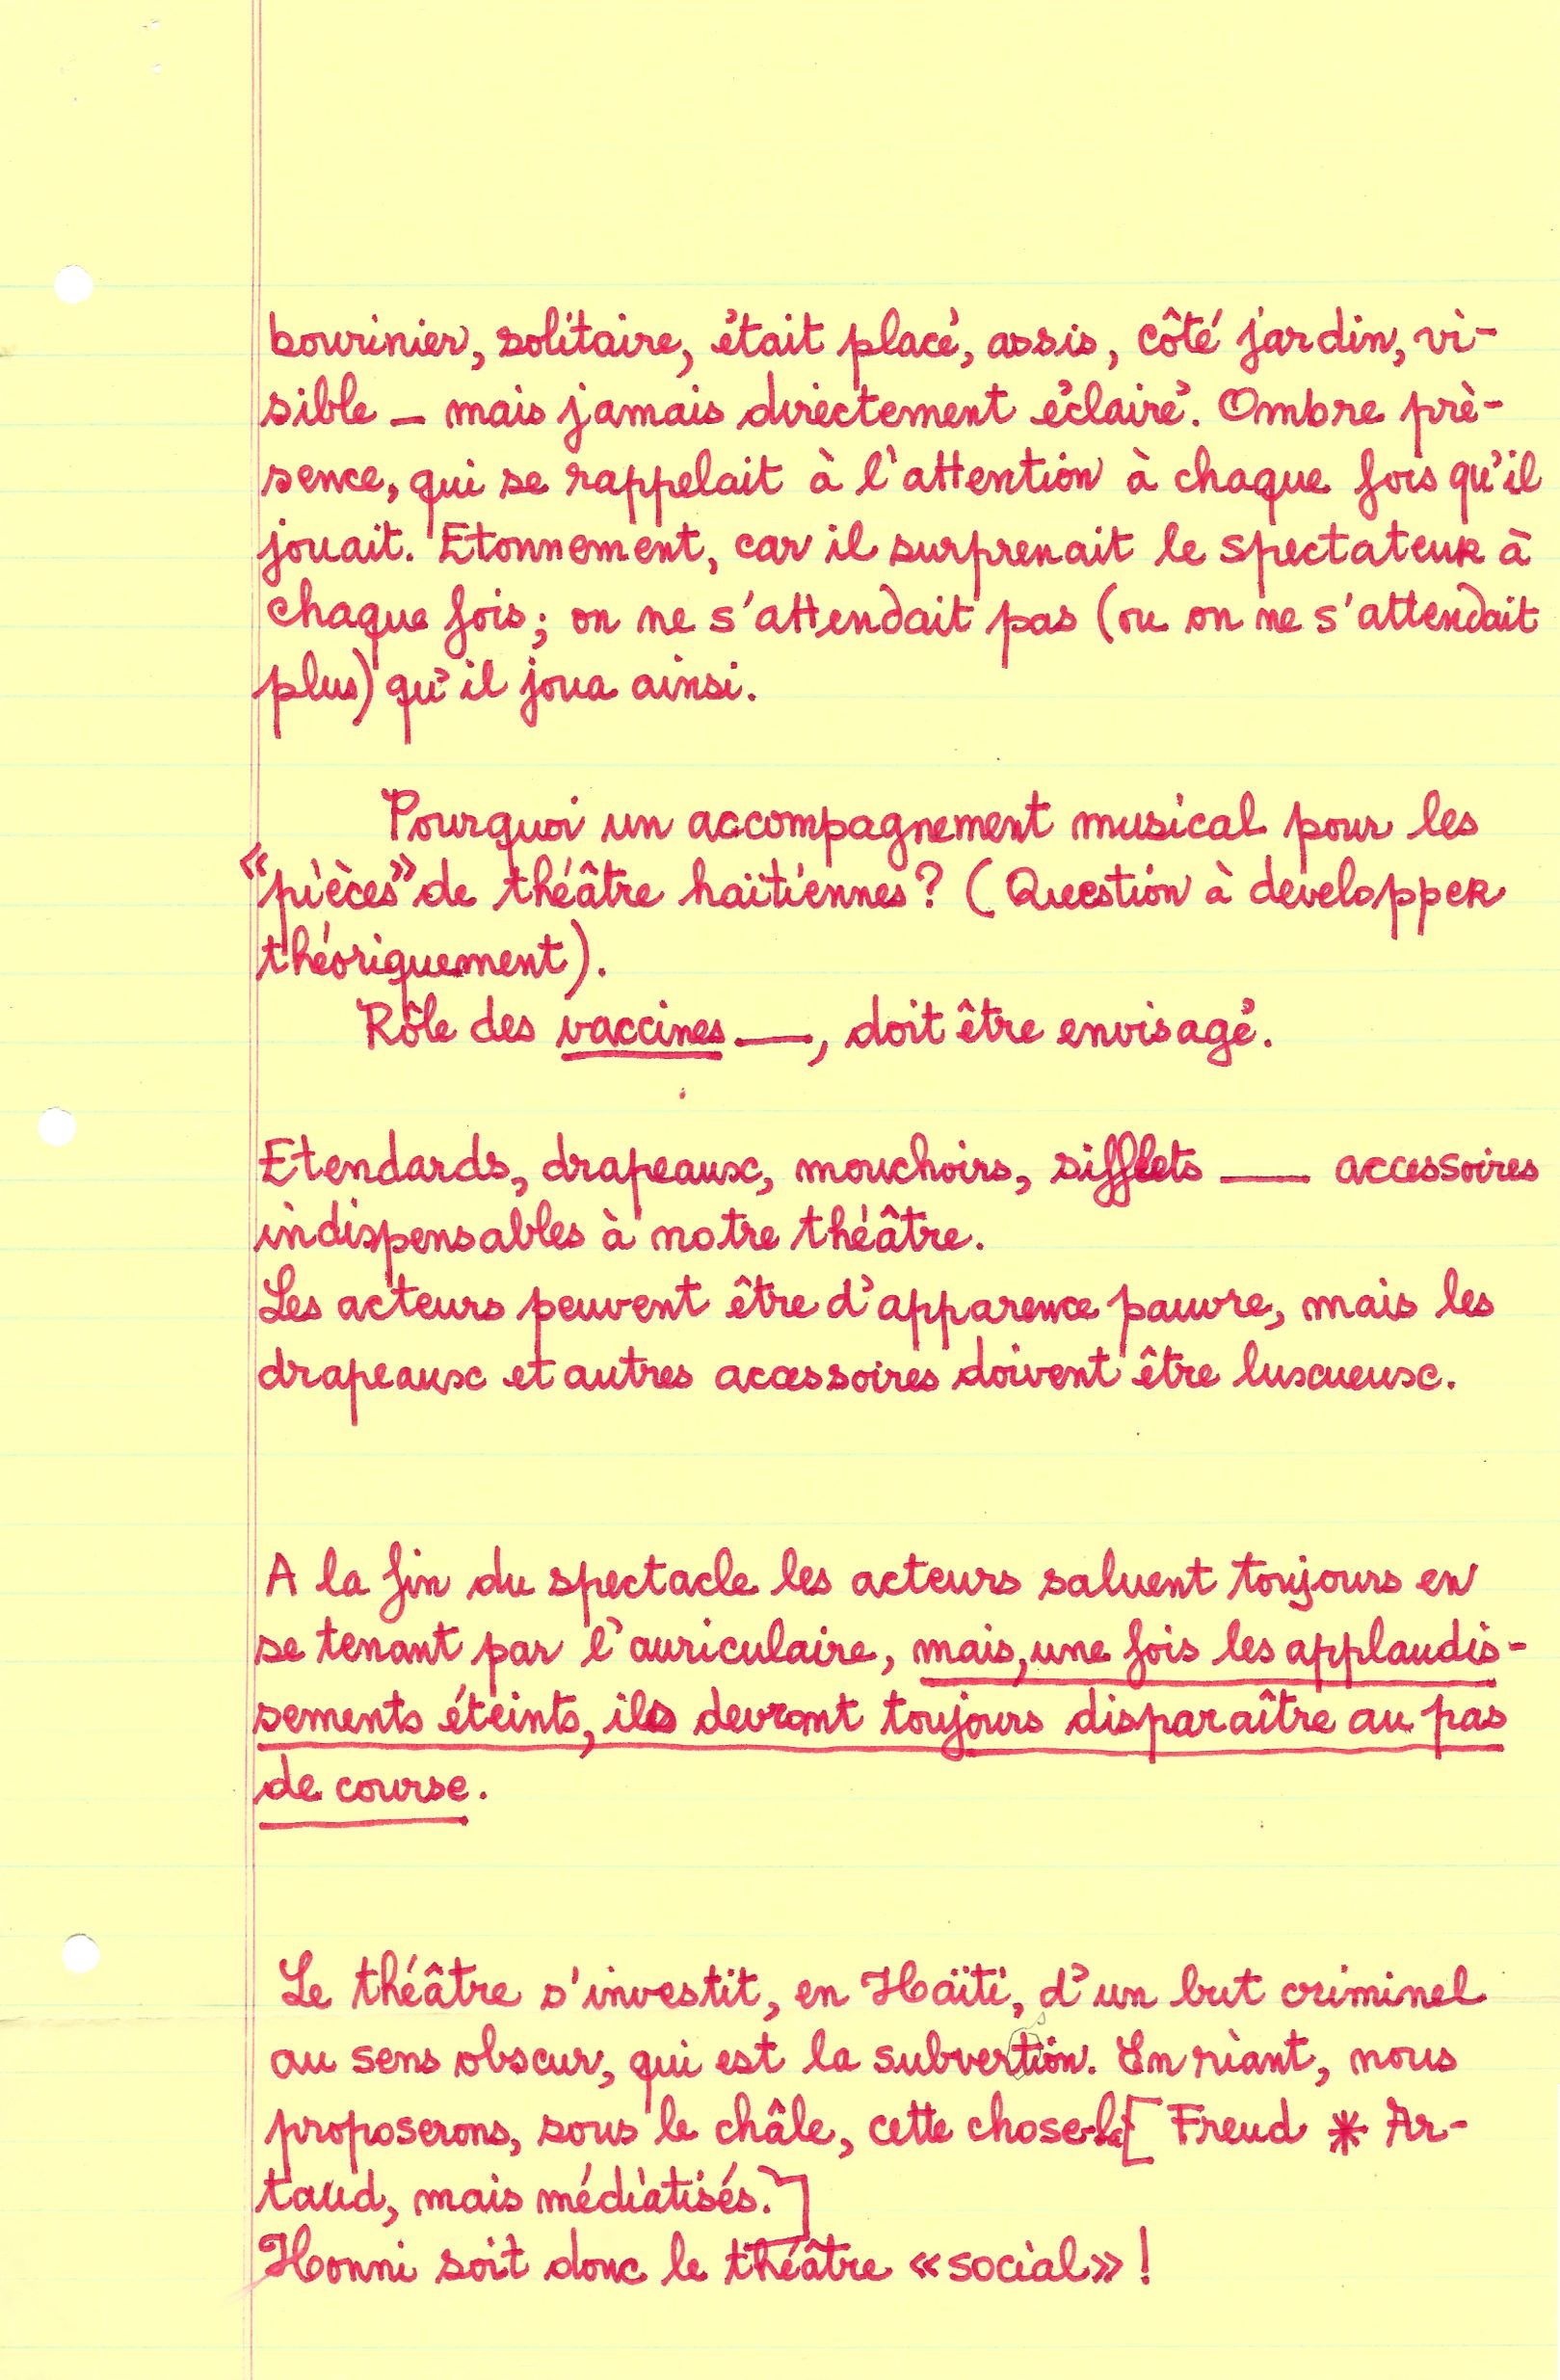 bourinier, solitaire, était placé, assis, côté jardin, vi-
sible – mais jamais directement éclairé. Ombre pré-
sence, qui se rappelait à l'attention à chaque fois qu'il
jouait. Etonnement, car il surprenait le spectateur à
chaque fois; on ne s'attendait pas (ou on ne s'attendait
plus) qu'il joua ainsi.
Pourquoi un accompagnement musical pour les
"pièces" de théâtre haïtiennes? (Question à developper
théoriquement).
Rôle des vaccines —, doit être envisagé.
Etendards, drapeaux, mouchoirs, sifflets — accessoires
indispensables à notre théâtre.
Les acteurs peuvent être d'apparence pauvre, mais les
drapeaux et autres accessoires doivent être luxueux.
A la fin du spectacle les acteurs saluent toujours en
se tenant par l'auriculaire, mais, une fois les applaudis-
sements éteints, ils devront toujours disparaître au pas
de course.
Le théâtre s'investit, en Haïti, d'un but criminel
au sens obscur, qui est la subvertion. En riant, nous
proposerons, sous le châle, cette chose-là [Freud * Ar-
taud, mais médiatisés.]
Honni soit donc le théâtre «social»!